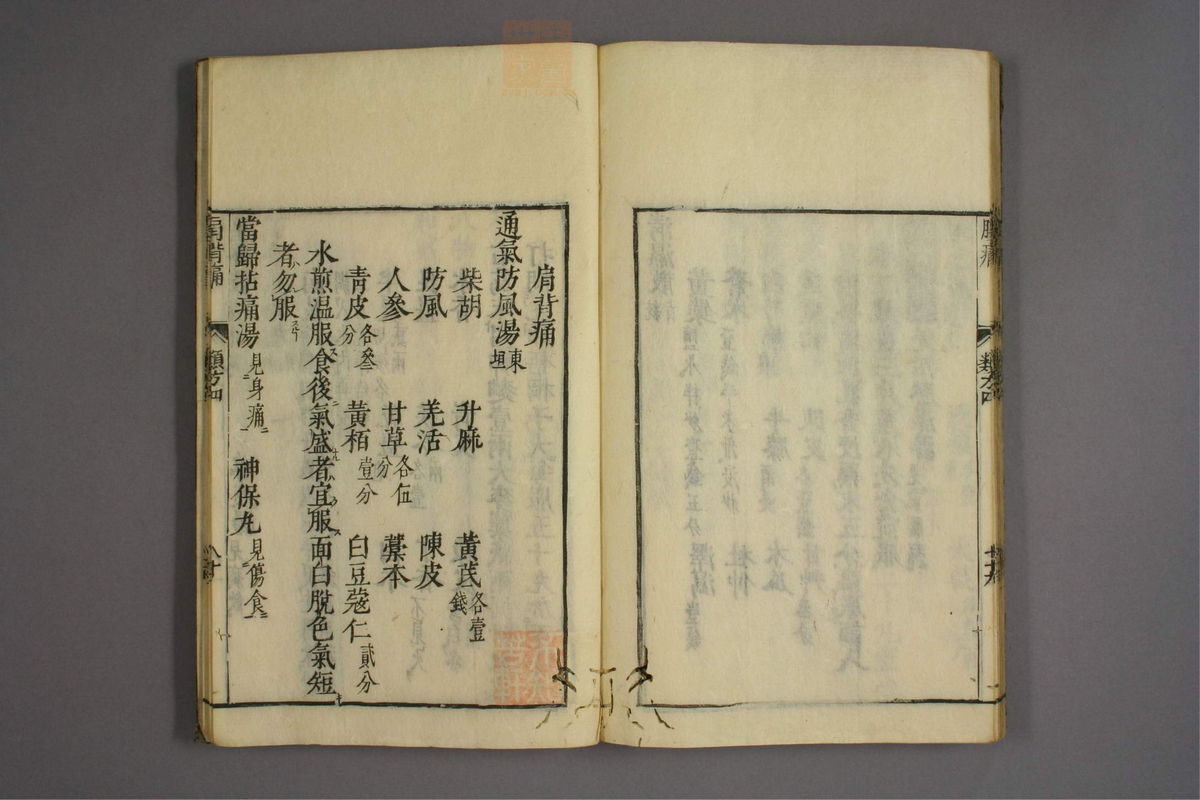 肩背痛
通氣防風湯東垣
柴胡 升麻 黃芪各壹錢
防風 羌活 陳皮
人參 甘草各伍分 藁本
青皮各叄分 黃栢壹分 白豆蔻仁貳分
水煎温服食後氣盛者宜服面白脫色氣短
者勿服
當歸拈痛湯見身痛 神保丸見傷食
肩背痛
類方四
類方四